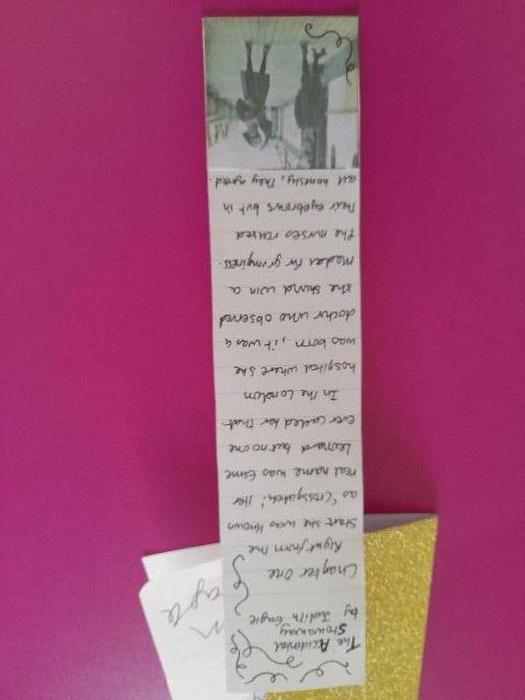 The Acidental
Stowaway
by Judith Eagle
Chapter One
Right from the
start she was known
as 'Crosspatch'. Her
real name was Esme
Leonard but no one
ever called her that.
In the London
hospital where she
was born, it was a
doctor who observed
she should win a
medal for grumpiness.
The nurses raised
their eyebrows but in
all honesty, they agreed.